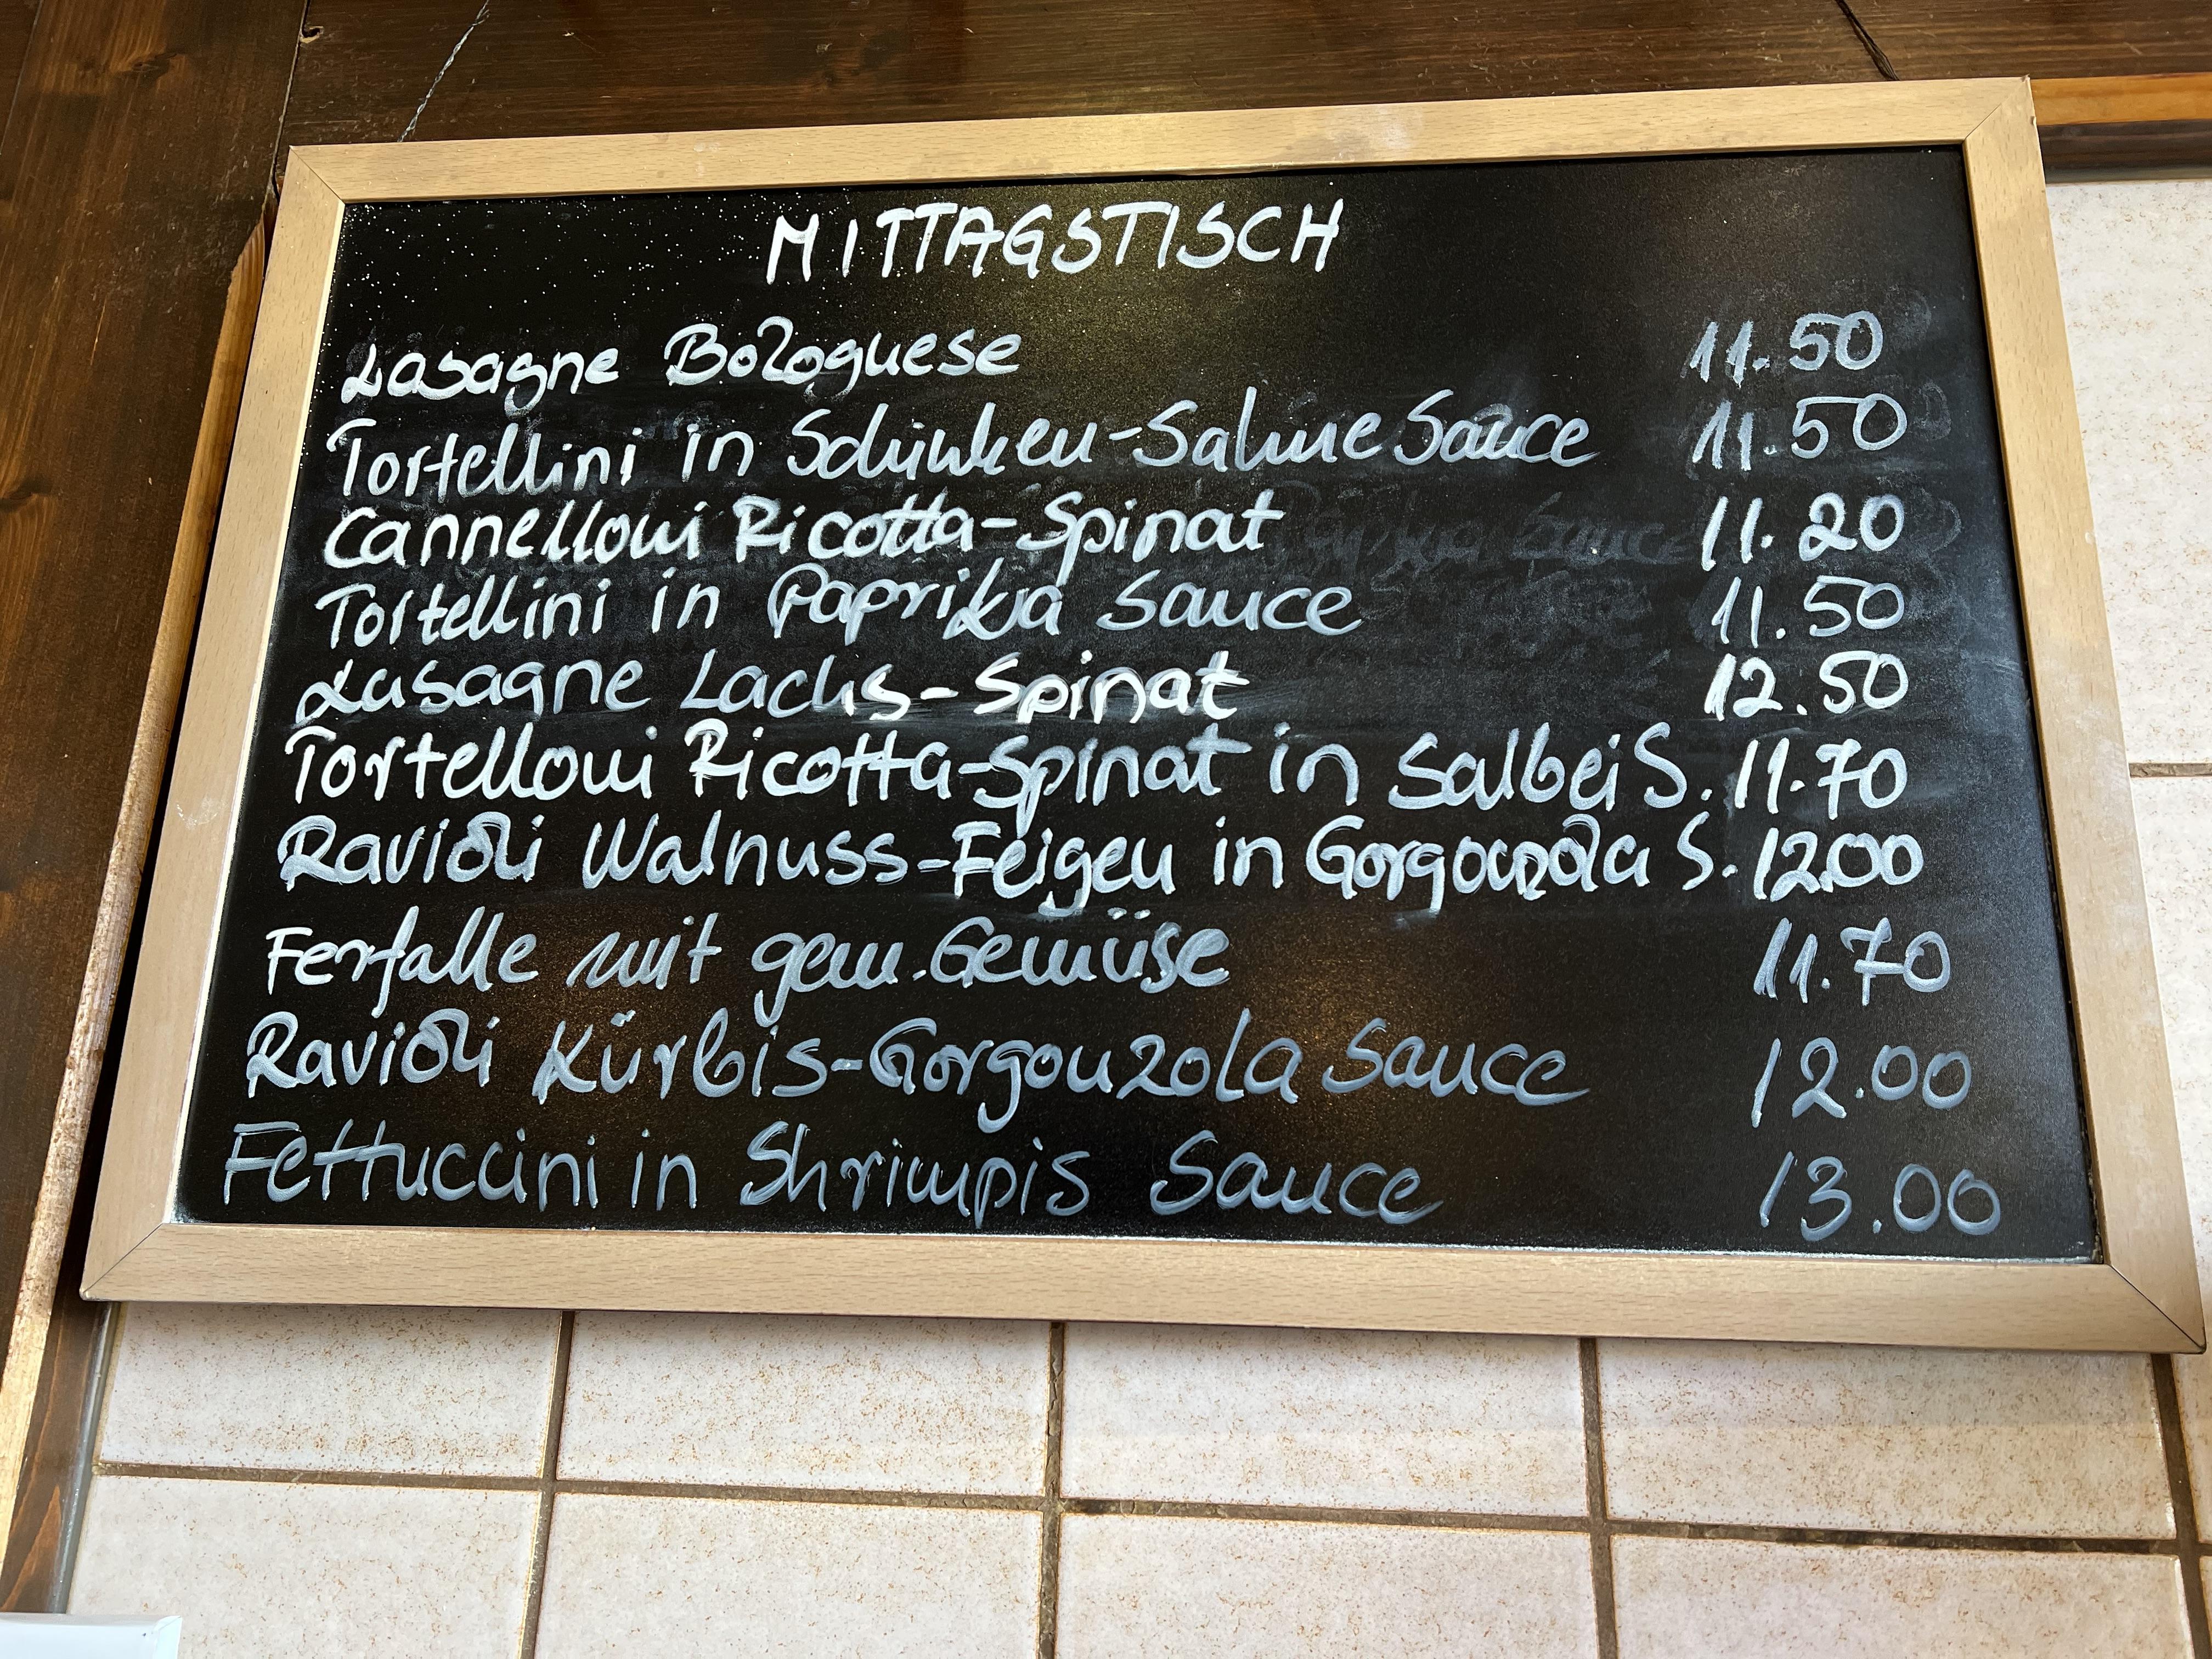 MITTAGSTISCH
Lasagne Bolognese 11.50
Tortellini in Schinken-Sahne Sauce 11.50
Cannelloni Ricotta-Spinat 11.20
Tortellini in Paprika Sauce 11.50
Lasagne Lachs-Spinat 12.50
Tortelloni Ricotta-Spinat in Salbei S. 11.70
Ravioli Walnuss-Feigen in Gorgonzola S. 12.00
Ferfalle mit gem. Gemüse 11.70
Ravioli Kürbis-Gorgonzola Sauce 12.00
Fettuccini in Shrimpis Sauce 13.00